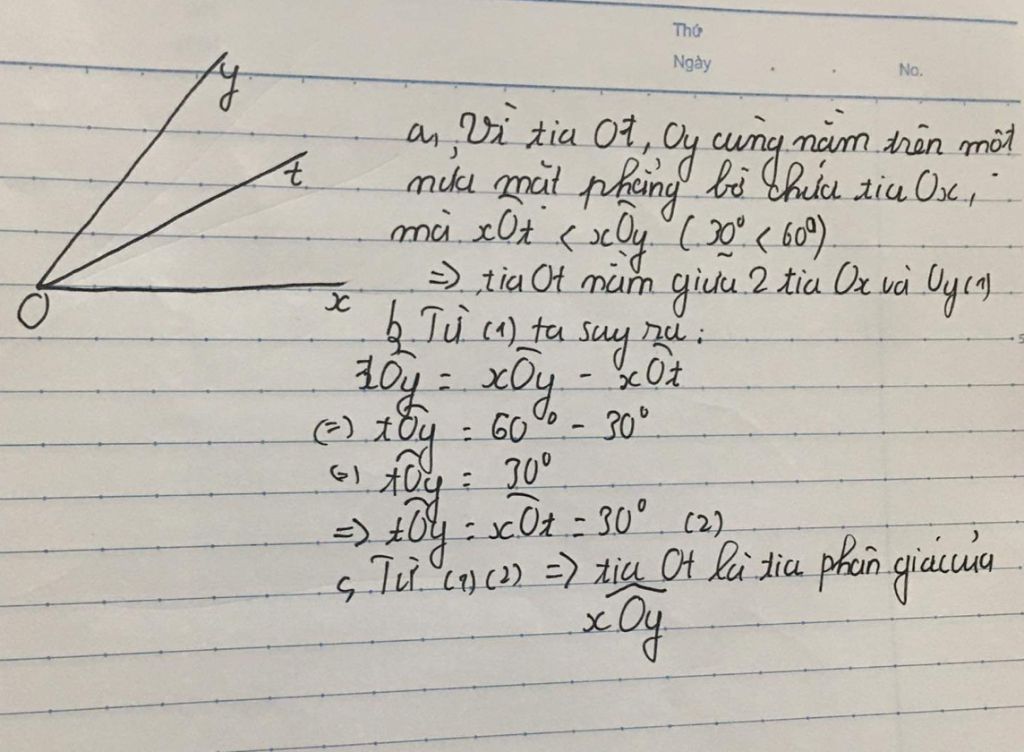 Thứ
Ngày . . No.
y
t
O
x
a, Vì tia Ot, Oy cùng nằm trên một
nửa mặt phẳng bờ chứa tia Ox,
mà xÔt < xÔy (30° < 60°)
=> tia Ot nằm giữa 2 tia Ox và Oy (1)
b, Từ (1) ta suy ra:
tÔy = xÔy - xÔt
(=) tÔy = 60° - 30°
(=) tÔy = 30°
=> tÔy = xÔt = 30° (2)
c, Từ (1) (2) => tia Ot là tia phân giác của
xÔy